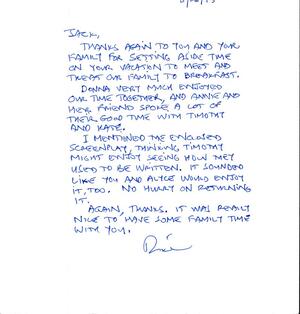 JACK,
THANKS AGAIN TO YOU AND YOUR
FAMILY FOR SETTING ASIDE TIME
ON YOUR VACATION TO MEET AND
TREAT OUR FAMILY TO BREAKFAST.
DONNA VERY MUCH ENJOYED
OUR TIME TOGETHER, AND ANNIE AND
HER FRIEND SPOKE A LOT OF
THEIR GOOD TIME WITH TIMOTHY
AND KATE.
I MENTIONED THE ENCLOSED
SCREENPLAY, THINKING TIMOTHY
MIGHT ENJOY SEEING HOW THEY
USED TO BE WRITTEN. IT SOUNDED
LIKE YOU AND ALYCE WOULD ENJOY
IT, TOO. NO HURRY ON RETURNING
IT.
AGAIN, THANKS. IT WAS REALLY
NICE TO HAVE SOME FAMILY TIME
WITH YOU.